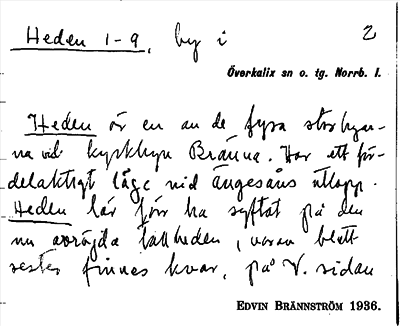 Heden 1-9, by i 2
Överkalix sn o. tg. Norrb. l.
Heden är en av de fyra storbyar-
na vid kyrkbyn Bränna. Har ett för-
delaktigt läge vid Ängesåns utlopp.
Heden lär förr ha syftat på den
nu avröjda tallheden, varav blott
rester finnes kvar, på V. sidan
EDVIN BRÄNNSTRÖM 1936.